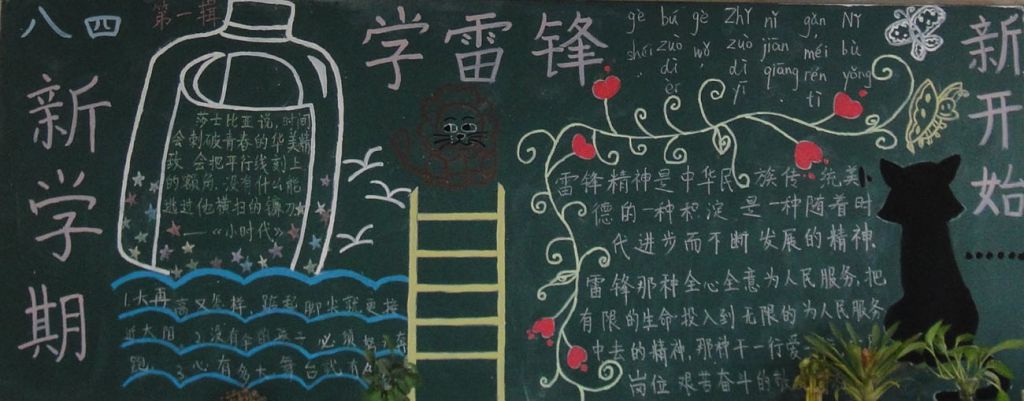 八四
第一辑
新学期
学雷锋
新开始
gè bú gè zhǐ nǐ gǎn
zuò wǒ zuò jiān méi bù
dì dì qiāng rén yǒng
èr yī tì
莎士比亚说，时间
会刺破青春的华美精
致，会把平行线刻上
的额角，没有什么能
逃过他横扫的镰刀
——《小时代》
1.天再高又怎样，踮起脚尖就更接
近太阳 2.没有伞的孩子必须
跑 3.心有多大舞台就有
雷锋精神是中华民族传统美
德的一种积淀，是一种随着时
代进步而不断发展的精神.
雷锋那种全心全意为人民服务，把
有限的生命投入到无限的为人民服务
中去的精神，那种干一行爱
岗位艰苦奋斗的